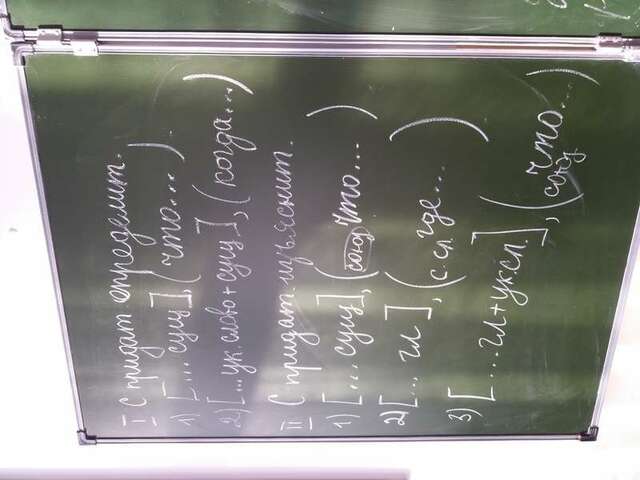 I С придат. определит.
1) [... сущ], (что...).
2) [... ук. слово + сущ], (когда...)
II С придат. изъяснит.
1) [... сущ], (союз что...)
2) [... гл], (с.сл. где...)
3) [... гл + ук.сл.], (союз что...)